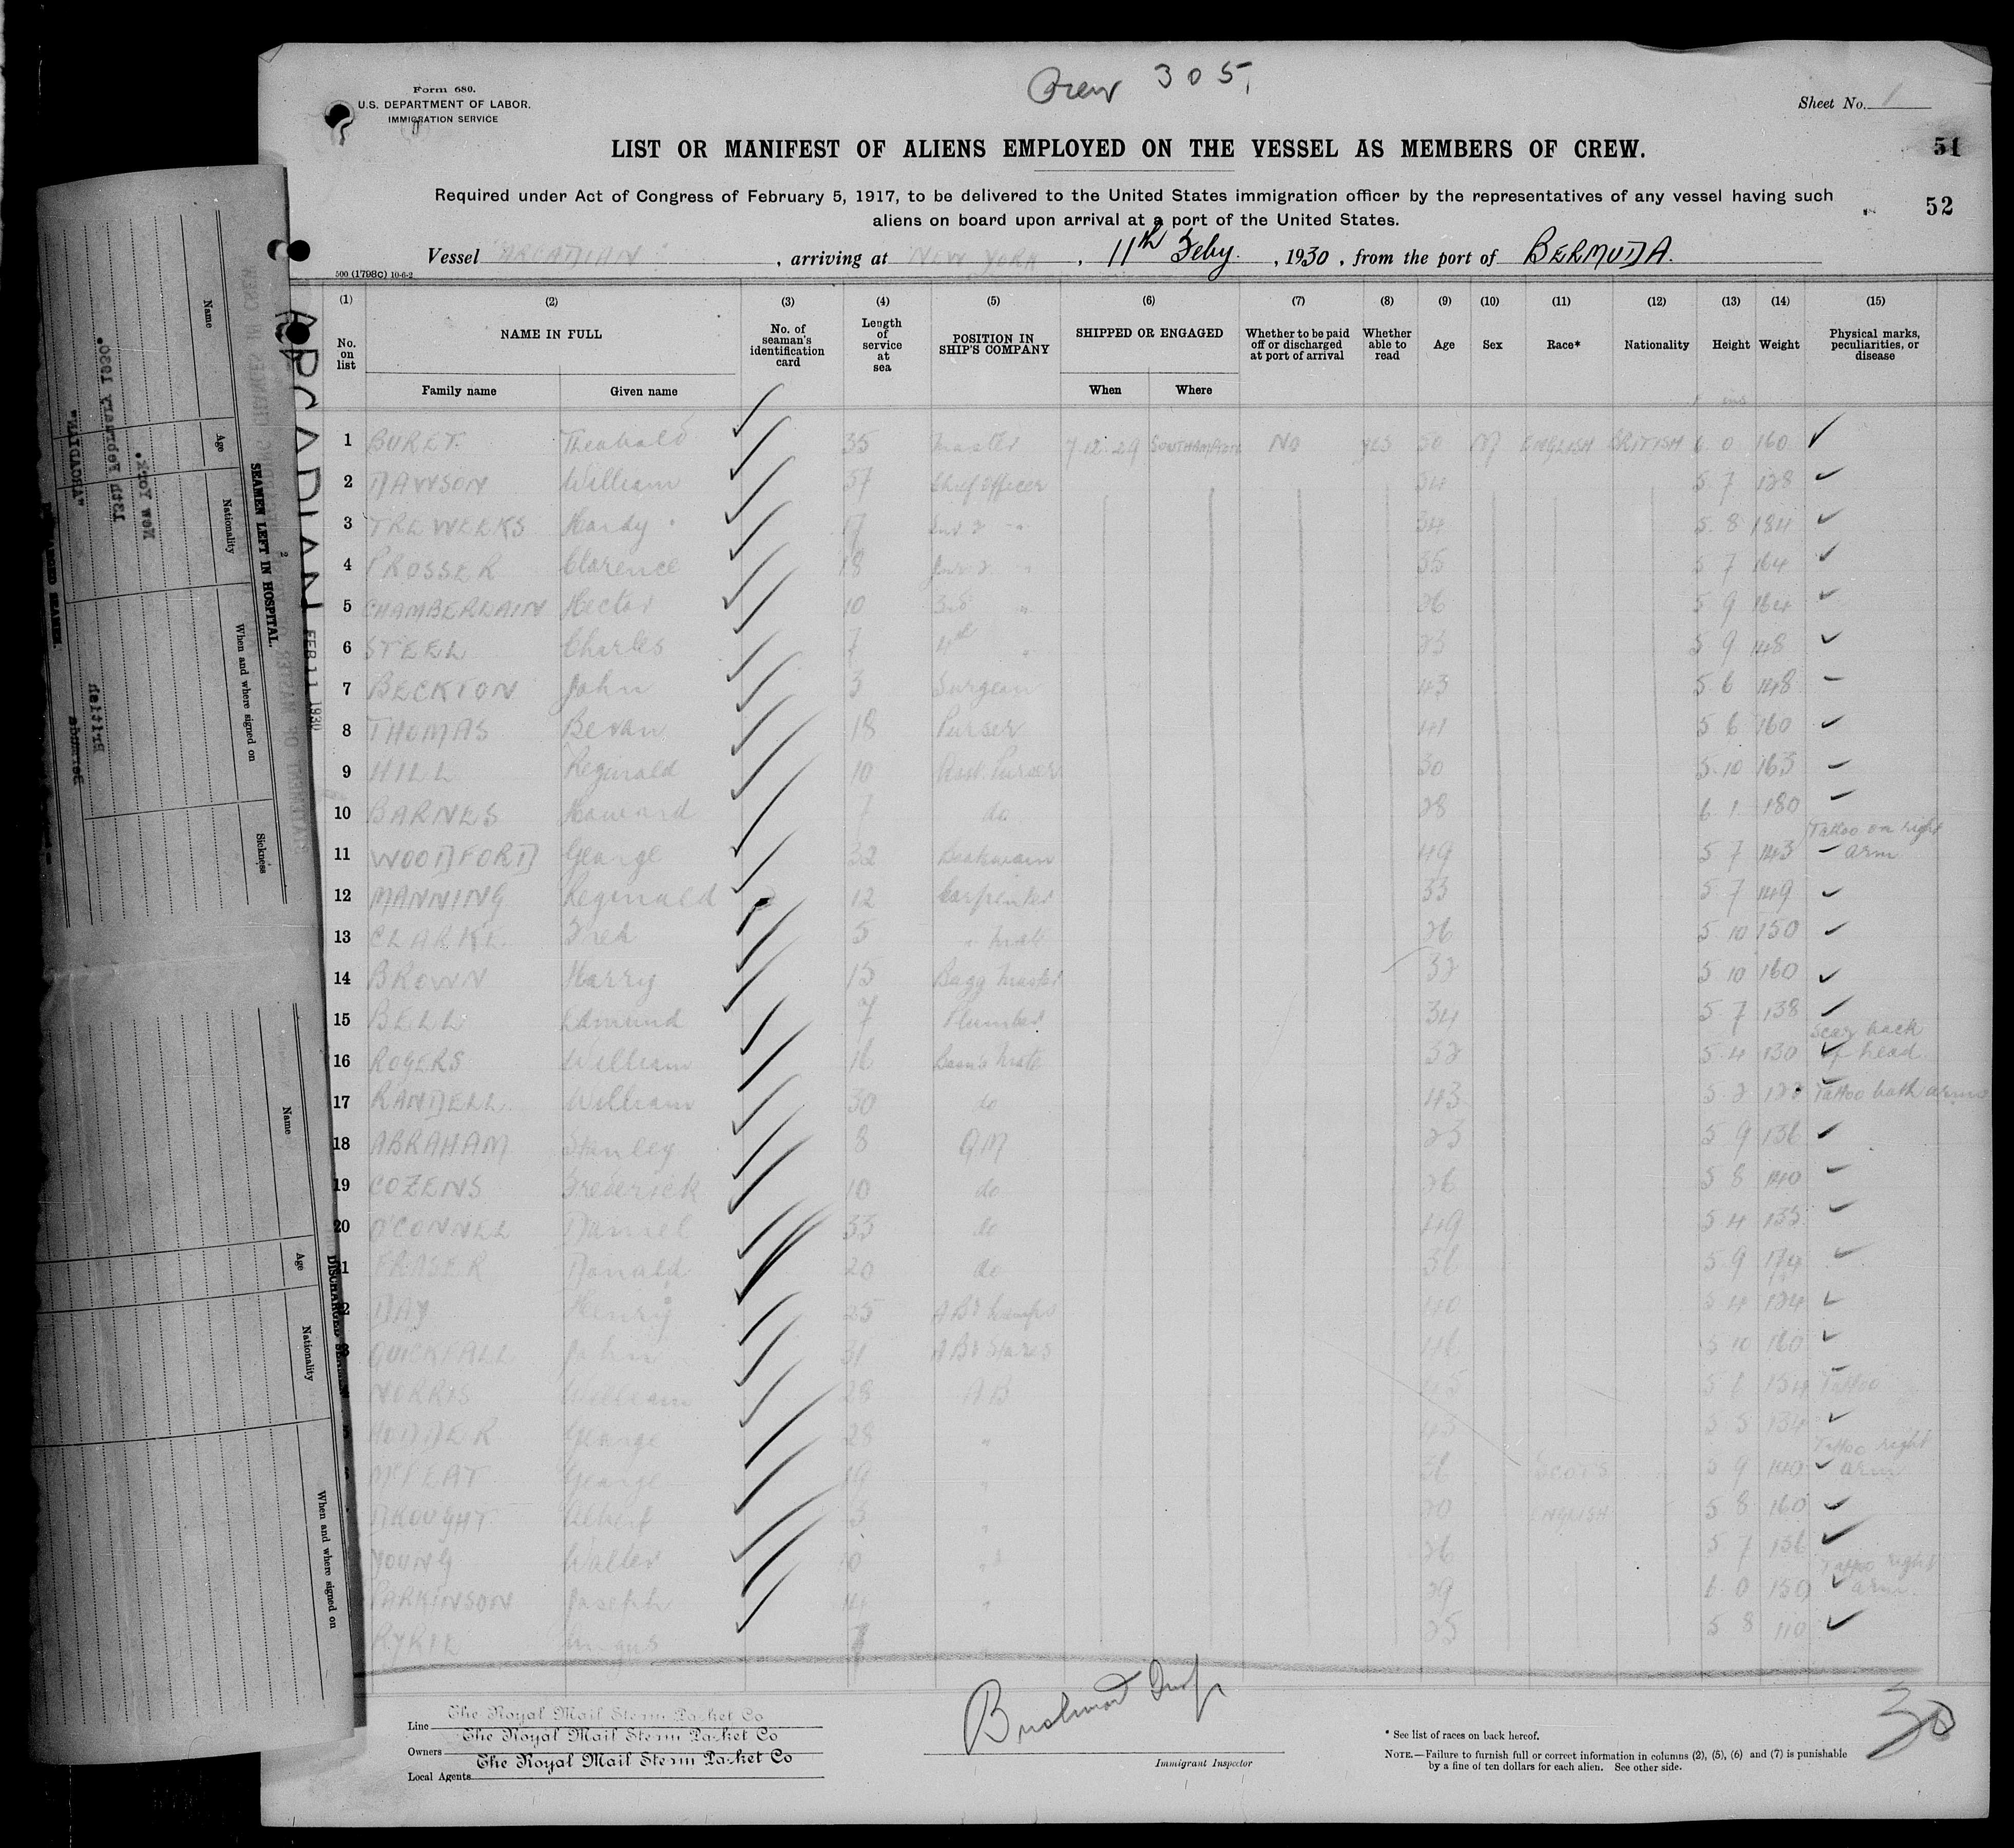 Crew 305,
Form 680.
U.S. DEPARTMENT OF LABOR.
IMMIGRATION SERVICE
Sheet No. 1
LIST OR MANIFEST OF ALIENS EMPLOYED ON THE VESSEL AS MEMBERS OF CREW.
51
Required under Act of Congress of February 5, 1917, to be delivered to the United States immigration officer by the representatives of any vessel having such
aliens on board upon arrival at a port of the United States.
52
Vessel "ARCADIAN", arriving at NEW YORK, 11th Feby., 1930, from the port of BERMUDA.
500 (1798c) 10-6-2
(1) (2) (3) (4) (5) (6) (7) (8) (9) (10) (11) (12) (13) (14) (15)
No. on list NAME IN FULL No. of seaman's identification card Length of service at sea POSITION IN SHIP'S COMPANY SHIPPED OR ENGAGED Whether to be paid off or discharged at port of arrival Whether able to read Age Sex Race* Nationality Height Weight Physical marks, peculiarities, or disease
Family name Given name When Where
1 BURET Theobald 35 Master 7-12-29 SOUTHAMPTON NO YES 50 M ENGLISH BRITISH 6 0 160
2 DAWSON William 37 Chief Officer 54 5 7 128
3 TREWEEKS Hardy 17 34 5 8 184
4 PROSSER Clarence 18 35 5 7 164
5 CHAMBERLAIN Hector 10 3rd " 26 5 9 164
6 STEEL Charles 7 4th " 23 5 9 148
7 BECKTON John 3 Surgeon 43 5 6 148
8 THOMAS Bevan 18 Purser 41 5 6 160
9 HILL Reginald 10 Asst. Purser 30 5 10 163
10 BARNES Howard 7 do 28 6 1 180
11 WOODFORD George 32 Boatswain 49 5 7 143 Tattoo on right arm
12 MANNING Reginald 12 Carpenter 33 5 7 149
13 CLARKE Fred 5 " Mate 26 5 10 150
14 BROWN Harry 15 Bagg Master 32 5 10 160
15 BELL Edmund 7 Plumber 34 5 7 138
16 ROGERS William 16 Bosn's Mate 32 5 4 130 Scar back of head
17 RANDELL William 30 do 43 5 2 Tattoo both arms
18 ABRAHAM Stanley 8 QM 23 5 9 136
19 COZENS Frederick 10 do 26 5 8 140
20 O'CONNEL Daniel 33 do 49 5 4 135
21 FRASER Donald 20 do 36 5 9 174
DAY Henry 25 AB & Lamps 40 5 4 124
QUICKFALL John 31 AB & Stores 46 5 10 160
NORRIS William 28 AB 45 5 6 154 Tattoo
HODDER George 28 " 43 5 5 134
McPEAT George 19 " 36 SCOTS 5 9 140 Tattoo right arm
DROUGHT Albert 3 " 20 ENGLISH 5 8 160
YOUNG Walter 10 " 26 5 7 136
PARKINSON Joseph 14 " 29 6 0 150 Tattoo right arm.
RYRIE Angus 7 " 25 5 8 110
Line The Royal Mail Steam Packet Co
Owners The Royal Mail Steam Packet Co
Local Agents The Royal Mail Steam Packet Co
Immigrant Inspector
* See list of races on back hereof.
NOTE.—Failure to furnish full or correct information in columns (2), (5), (6) and (7) is punishable
by a fine of ten dollars for each alien. See other side.
30
ARCADIAN FEB 11 1930
SEAMEN LEFT IN HOSPITAL.
Name Age Nationality When and where signed on Sickness
"ARCADIAN"
13th February 1930.
New York.
British
DISCHARGED SEAMEN
Name Age Nationality When and where signed on